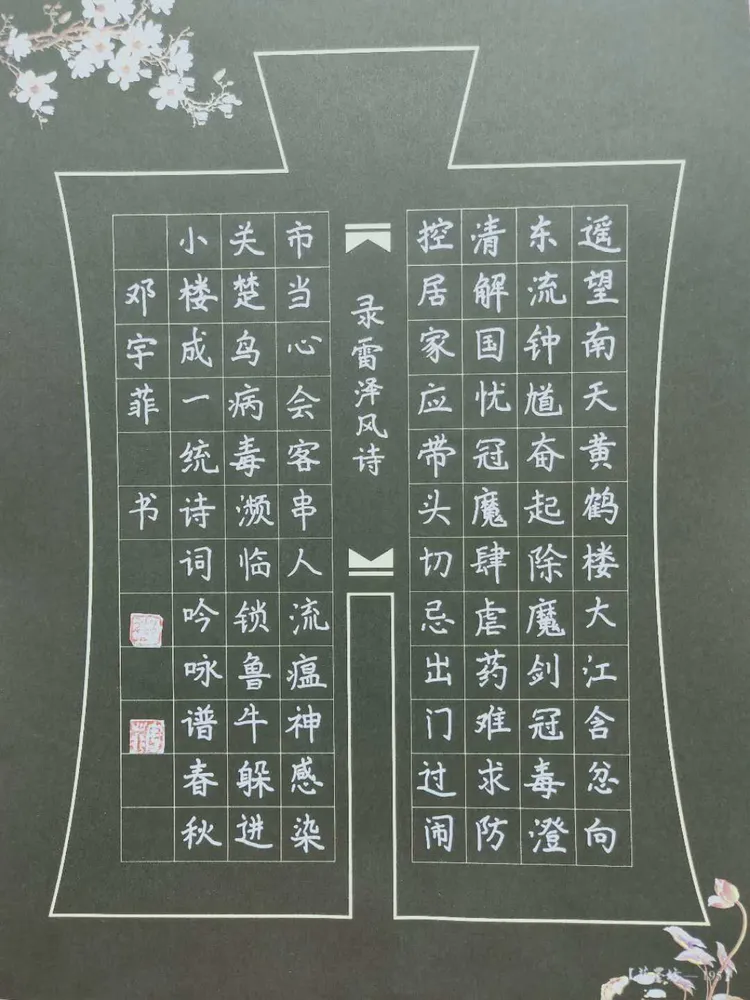 遥望南天黄鹤楼大江含忿向
东流钟馗奋起除魔剑冠毒澄
清解国忧冠魔肆虐药难求防
控居家应带头切忌出门过闹
录雷泽风诗
市当心会客串人流瘟神感染
关楚鸟病毒濒临锁鲁牛躲进
小楼成一统诗词吟咏谱春秋
邓宇菲书